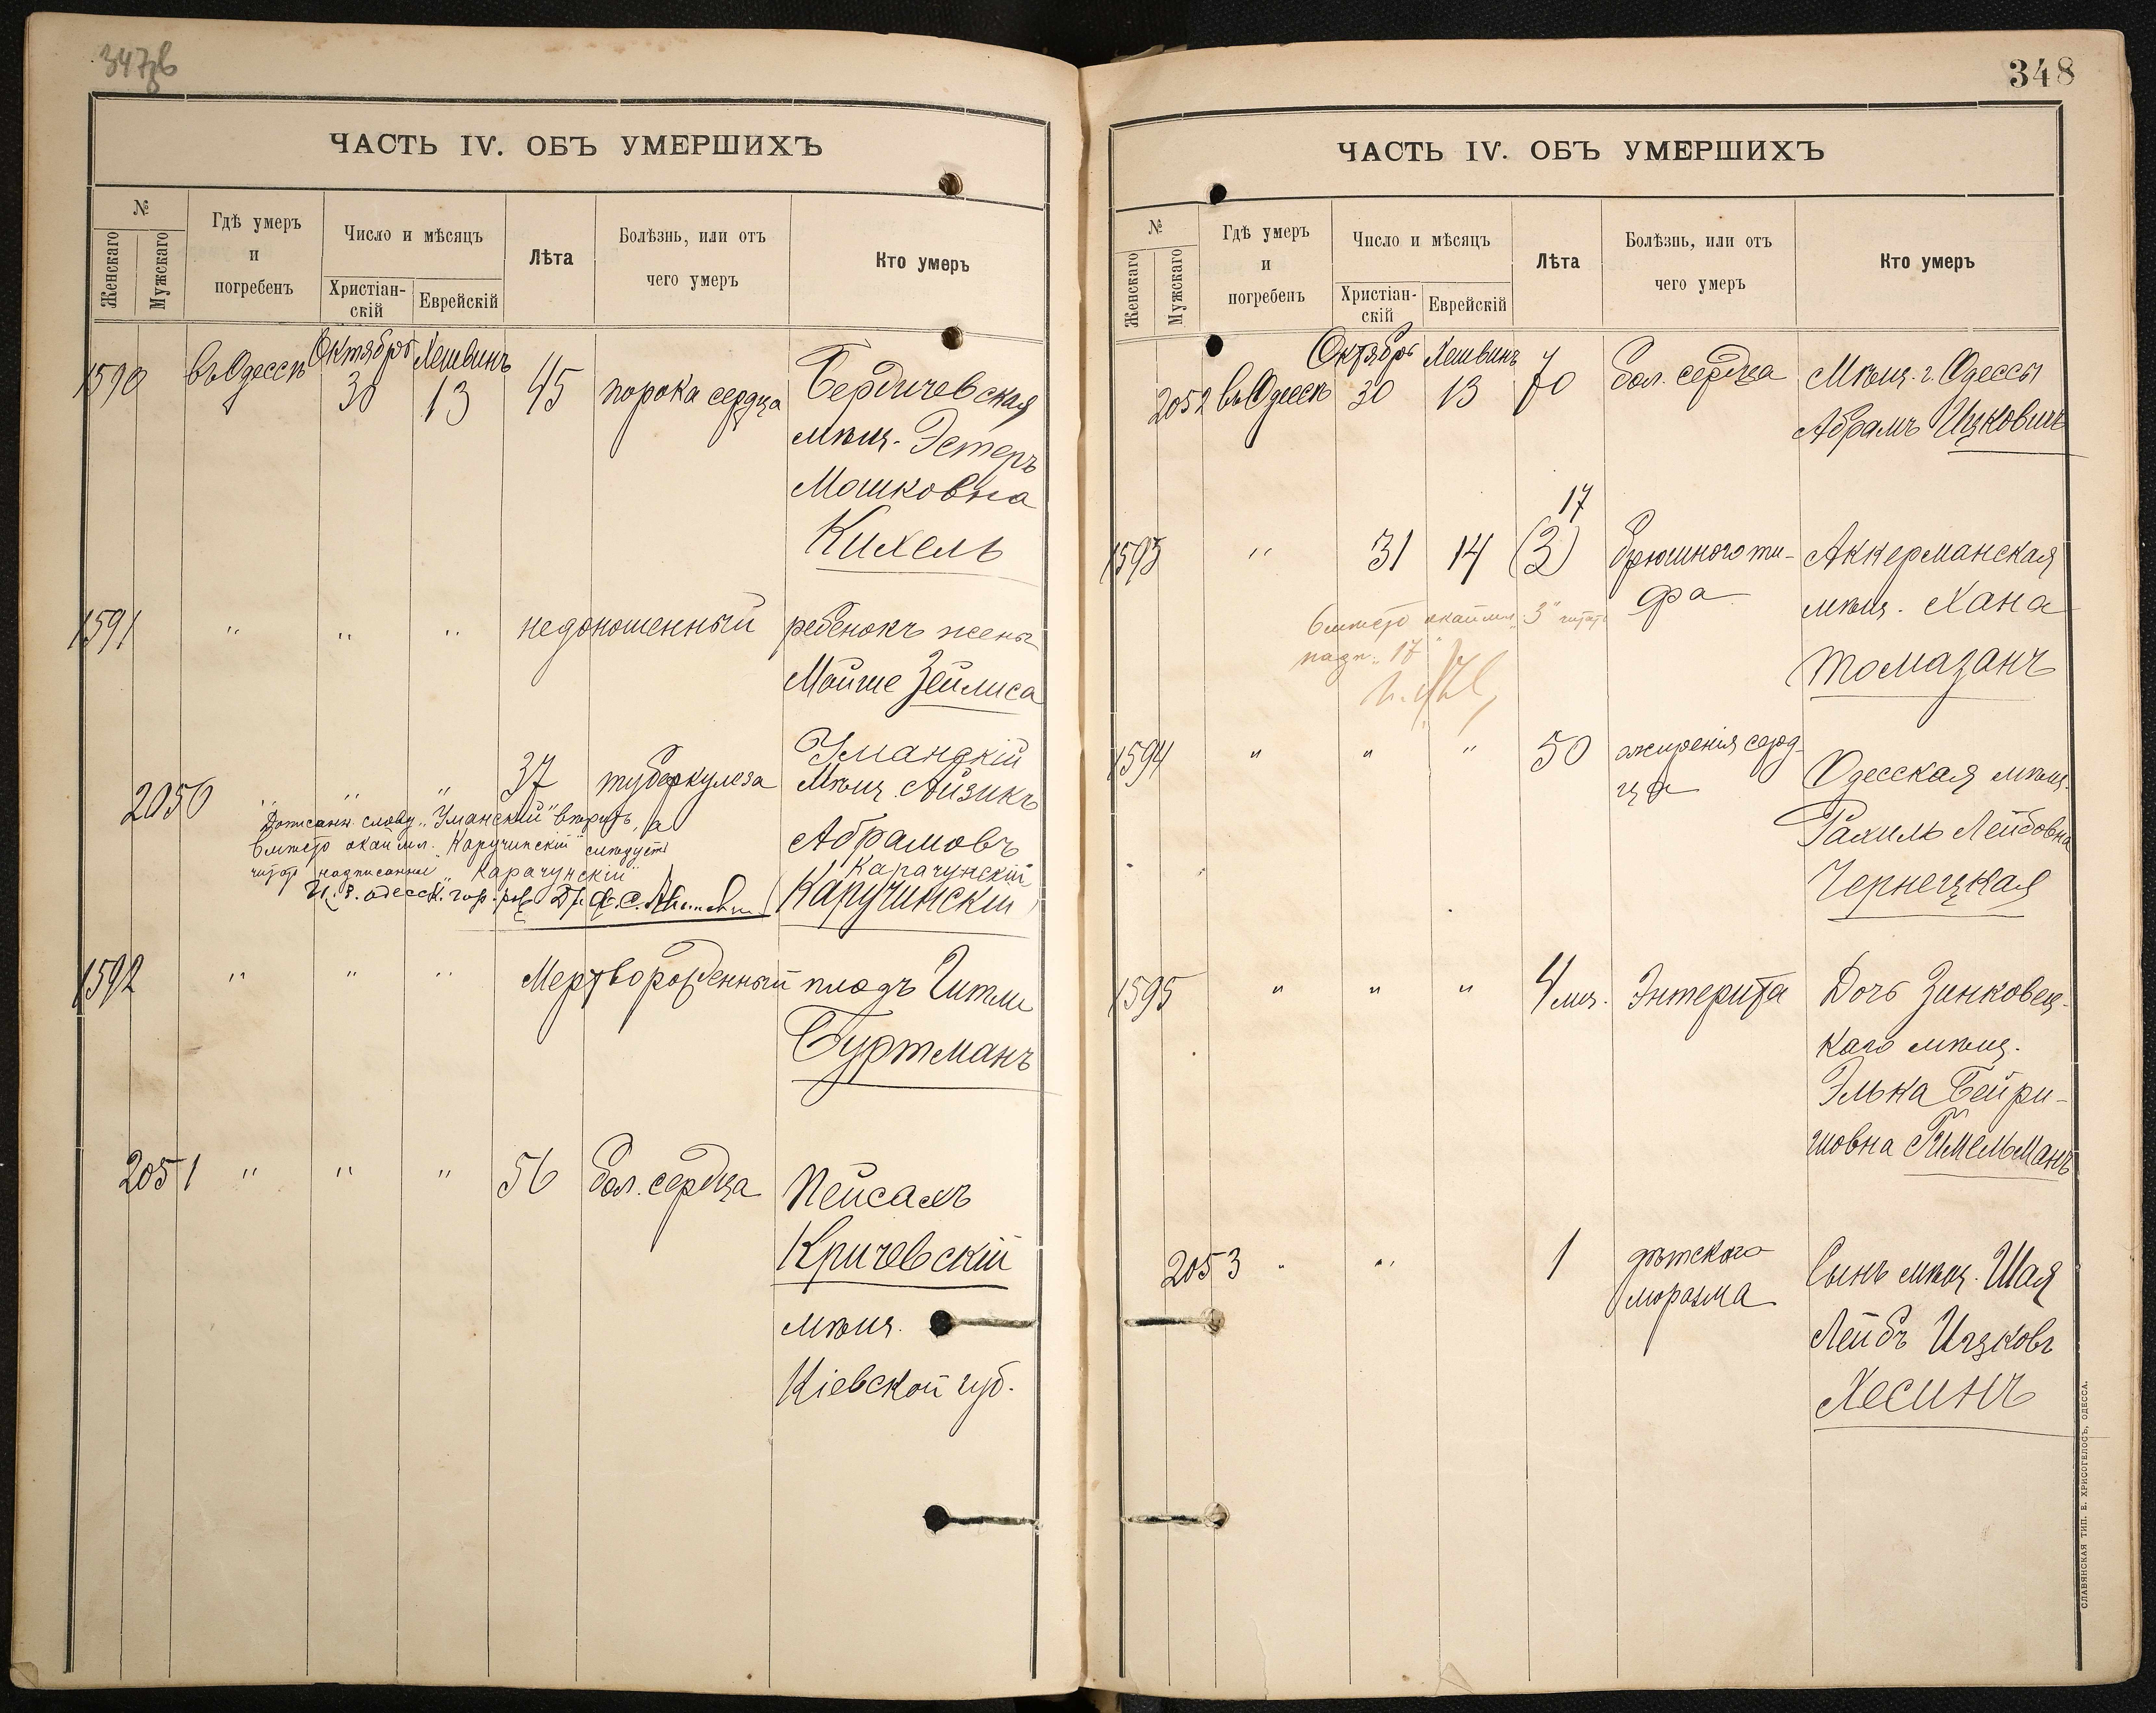 347об
ЧАСТЬ IV. ОБЪ УМЕРШИХЪ
№
Женскаго
Мужскаго
Гдѣ умеръ
и
погребенъ
Число и мѣсяцъ
Христіан-
скій
Еврейскій
Лѣта
Болѣзнь, или отъ
чего умеръ
Кто умеръ
1590 въ Одессѣ Октября 30 Хешвинъ 13 45 порока сердца Бердичевская
мѣщ. Эстеръ
Мошковна
Кихель
1591 " " " недоношенный ребенокъ жены
Мойше Зейлиса
2050 " " " 37 туберкулеза Уманскій
Мѣщ. Айзикъ
Абрамовъ
Карачунскій
(Каручинскій)
Дописанн. слову „Уманскій" вѣрить, а
вмѣсто окаймл. „Каручинскій" слѣдуетъ
читать надписанное „Карачунскій"
И. д. одесск. гор. рав.
1592 " " " Мертворожденный плодъ Гитли
Буртманъ
2051 " " " 56 бол. сердца Пейсахъ
Кричевскій
мѣщ.
Кіевской губ.
348
ЧАСТЬ IV. ОБЪ УМЕРШИХЪ
№
Женскаго
Мужскаго
Гдѣ умеръ
и
погребенъ
Число и мѣсяцъ
Христіан-
скій
Еврейскій
Лѣта
Болѣзнь, или отъ
чего умеръ
Кто умеръ
2052 въ Одессѣ Октябрь 30 Хешвинъ 13 70 бол. сердца Мѣщ. г. Одессы
Абрамъ Ицковичъ
17
1593 " 31 14 (3) брюшного ти- Аккерманская
фа мѣщ. Хана
Томазанъ
вмѣсто окаймл. „3" читать
надп. „17"
1594 " " " 50 ожиренія серд- Одесская мѣщ.
ца Рахиль Лейбовна
Чернецкая
1595 " " " 4 мѣс. Энтерита Дочь Зинковец-
каго мѣщ.
Элька Бейри-
шовна Гимельманъ
2053 " " 1 дѣтского Сынъ мѣщ. Шая
моразма Лейбъ Ицковъ
Хесинъ
СЛАВЯНСКАЯ ТИП. Е. ХРИСОГЕЛОСЪ, ОДЕССА.